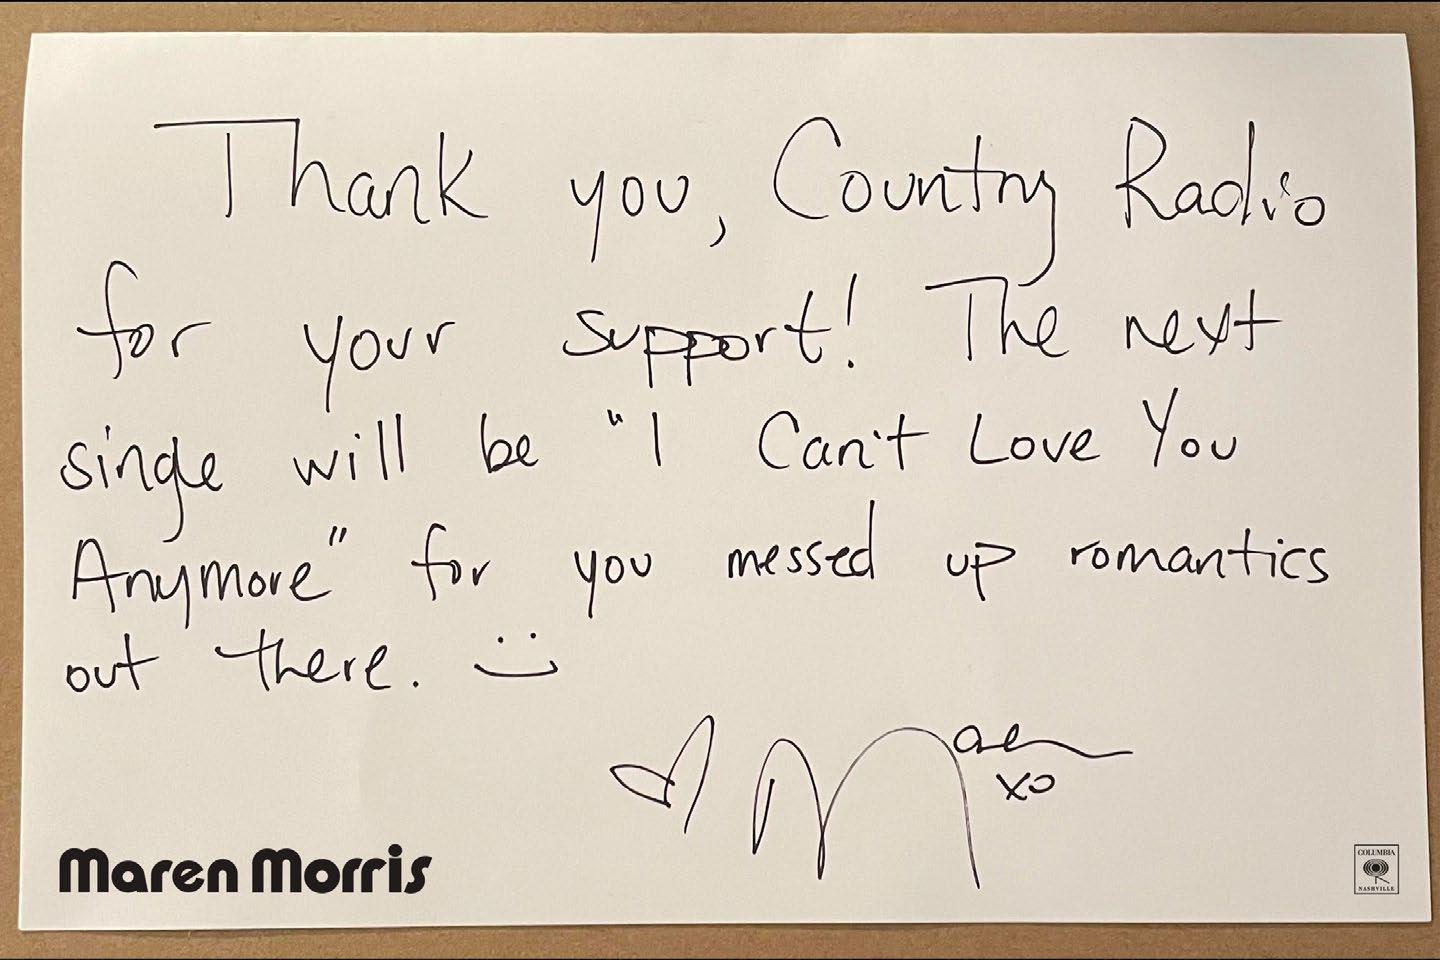 Thank you, Country Radio
for your support! The next
single will be "I Can't Love You
Anymore" for you messed up romantics
out there.
Maren
xo
Maren Morris
COLUMBIA
NASHVILLE